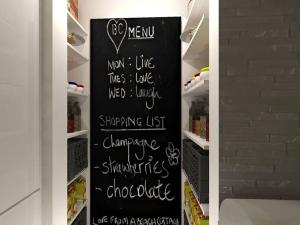 BC MENU
MON : LIVE
TUES : LOVE
WED : laugh
SHOPPING LIST
- Champagne
- strawberries
- chocolate
LOVE FROM A BEACH COTTAGE